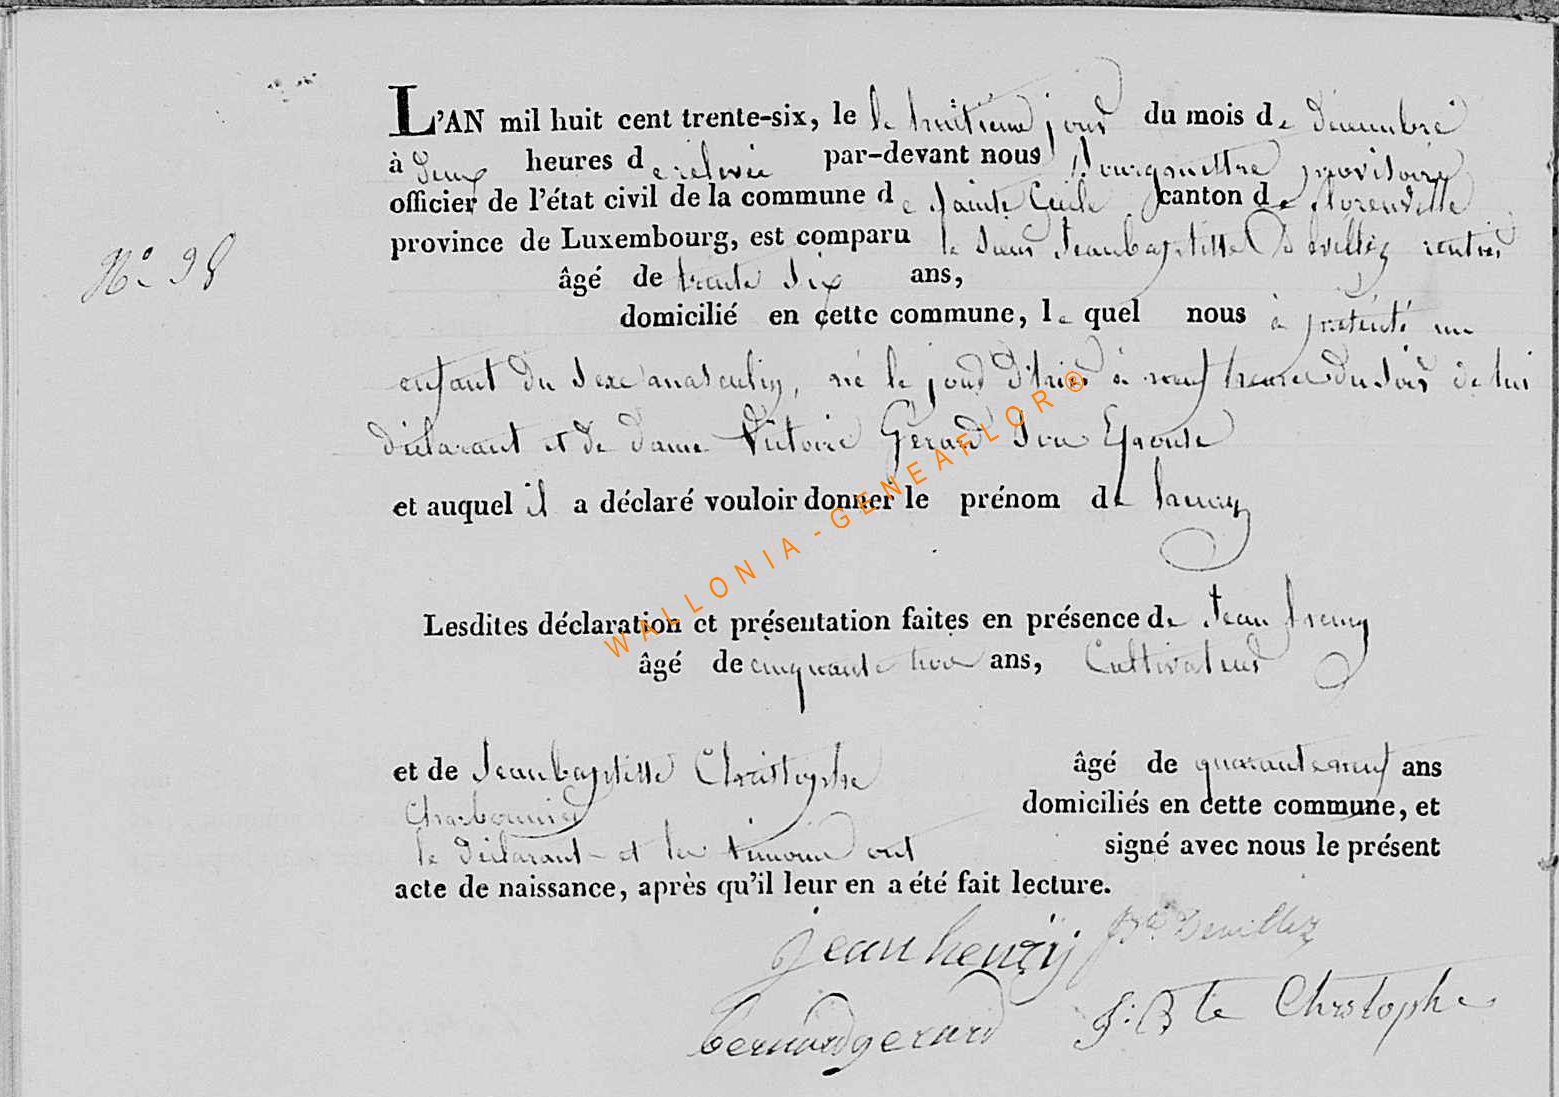 L'AN mil huit cent trente-six, le le huitieme jour du mois de Décembre
à Deux heures de relevée par-devant nous Bourgmettre provisoire
officier de l'état civil de la commune de Sainte Cecile canton de florenville
province de Luxembourg, est comparu le Sieur Jeanbaptiste Devillez rentier
N° 98
âgé de trente Six ans,
domicilié en cette commune, le quel nous à présenté un
enfant du Sexe masculin, né le jour D'hier à neuf heures du Soir de lui
déclarant et de Dame Victoire Gérard Son Epouse
et auquel il a déclaré vouloir donner le prénom de
Lesdites déclaration et présentation faites en présence de Jean henry
âgé de cinquante trois ans, Cultivateur
et de Jeanbaptiste Christophe âgé de quaranteneuf ans
Charbonnier domiciliés en cette commune, et
le Déclarant et les témoins ont signé avec nous le présent
acte de naissance, après qu'il leur en a été fait lecture.
jean henrÿ Devillez
bernard gerard J: B te Christophe
WALLONIA-GENEAFLOR ®